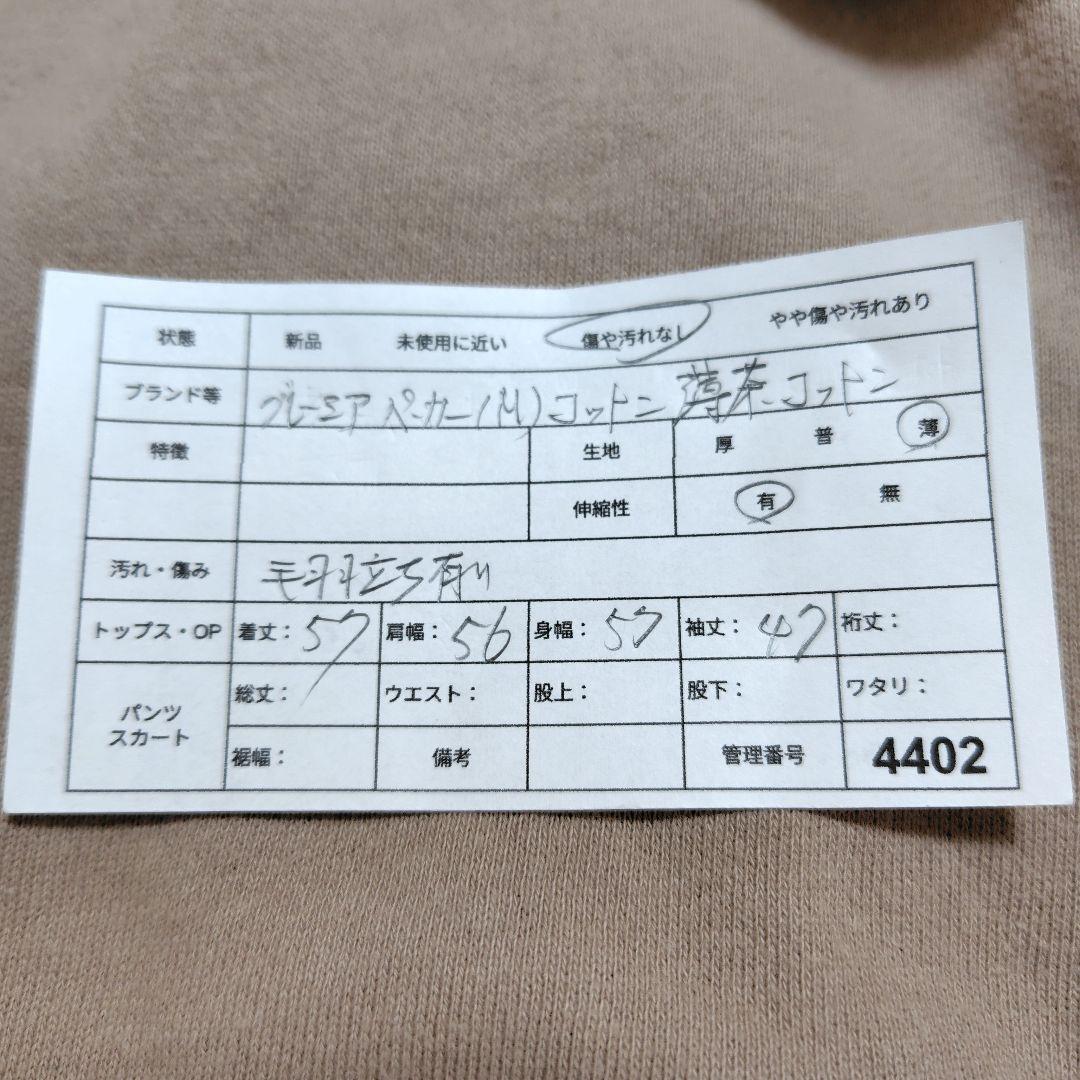 状態 新品 未使用に近い 傷や汚れなし やや傷や汚れあり
ブランド等 グレーミア パーカー(M)コットン 薄茶 コットン
特徴 生地 厚 普 薄
伸縮性 有 無
汚れ・傷み 毛羽立ち有り
トップス・OP 着丈: 57 肩幅: 56 身幅: 57 袖丈: 47 裄丈:
パンツ スカート 総丈: ウエスト: 股上: 股下: ワタリ:
裾幅: 備考 管理番号 4402